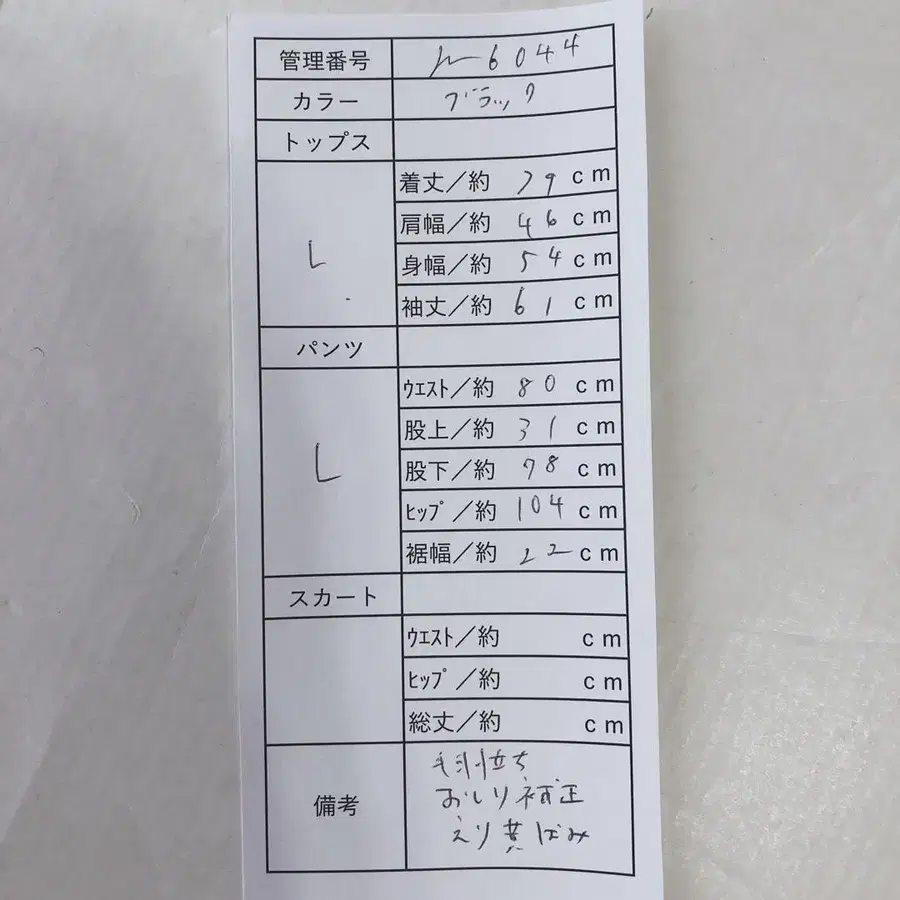 管理番号 6044
カラー ブラック
トップス
L
着丈／約 79 cm
肩幅／約 46 cm
身幅／約 54 cm
袖丈／約 61 cm
パンツ
L
ウエスト／約 80 cm
股上／約 31 cm
股下／約 78 cm
ヒップ／約 104 cm
裾幅／約 22 cm
スカート
ウエスト／約 cm
ヒップ／約 cm
総丈／約 cm
備考
毛羽立ち
おしり補正
えり黄ばみ